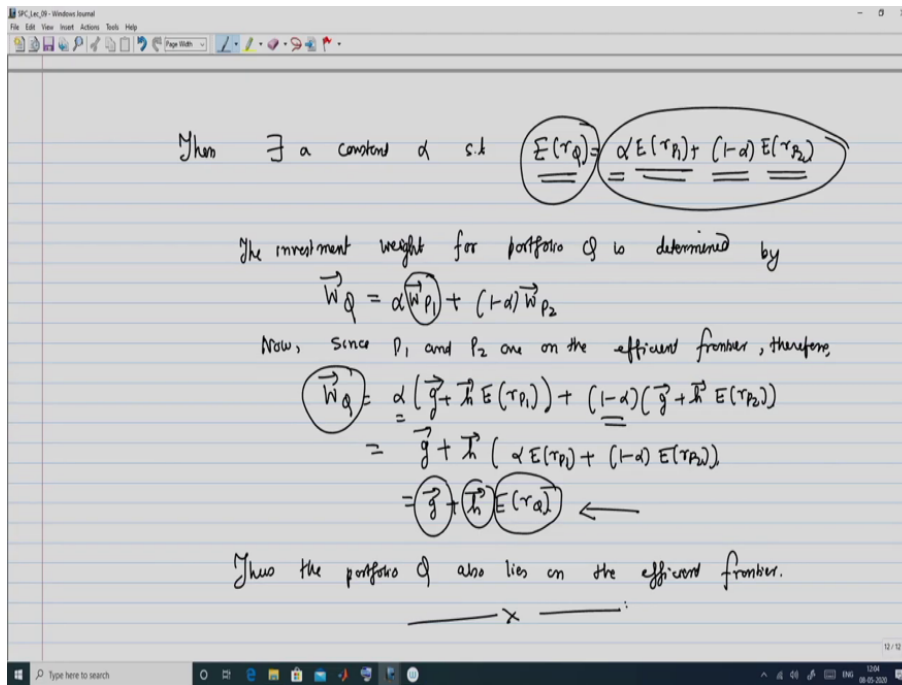 SPC_Lec_09 - Windows Journal
File Edit View Insert Actions Tools Help
Page Width
Then ∃ a constant α s.t E(r_Q) = α E(r_P1) + (1-α) E(r_P2)
The investment weight for portfolio Q is determined by
W⃗_Q = α W⃗_P1 + (1-α) W⃗_P2
Now, since P1 and P2 are on the efficient frontier, therefore,
W⃗_Q = α (g⃗ + h⃗ E(r_P1)) + (1-α) (g⃗ + h⃗ E(r_P2))
= g⃗ + h⃗ ( α E(r_P1) + (1-α) E(r_P2))
= g⃗ + h⃗ E(r_Q) ←
Thus the portfolio Q also lies on the efficient frontier.
—— x ——
12 / 12
Type here to search
ENG
12:04
08-05-2020